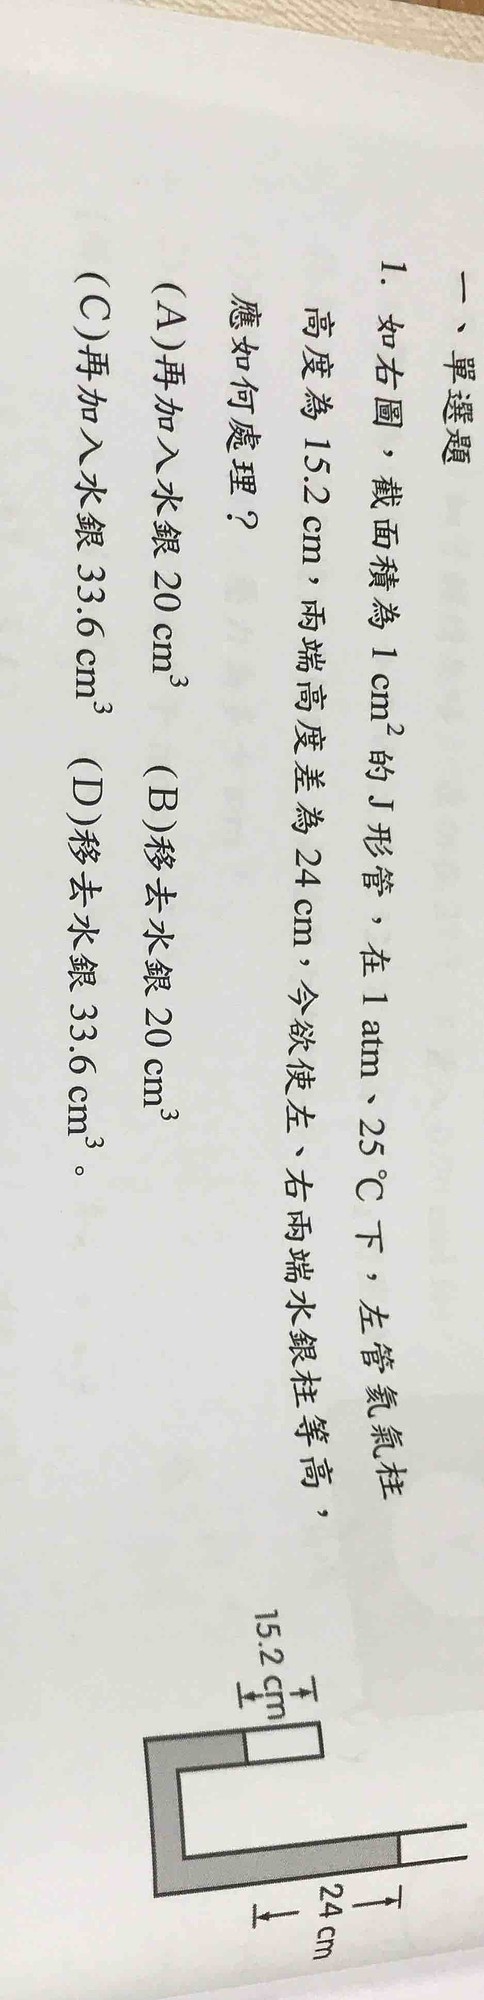 一、單選題
1. 如右圖，截面積為 1 cm² 的 J 形管，在 1 atm、25 ℃ 下，左管氦氣柱
高度為 15.2 cm，兩端高度差為 24 cm，今欲使左、右兩端水銀柱等高，
應如何處理？
(A)再加入水銀 20 cm³ (B)移去水銀 20 cm³
(C)再加入水銀 33.6 cm³ (D)移去水銀 33.6 cm³。
15.2 cm
24 cm